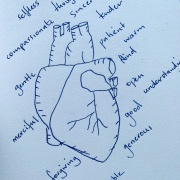 selfless
through
sincere
tender
compassionate
patient
warm
kind
gentle
open
understanding
good
merciful
generous
forgiving